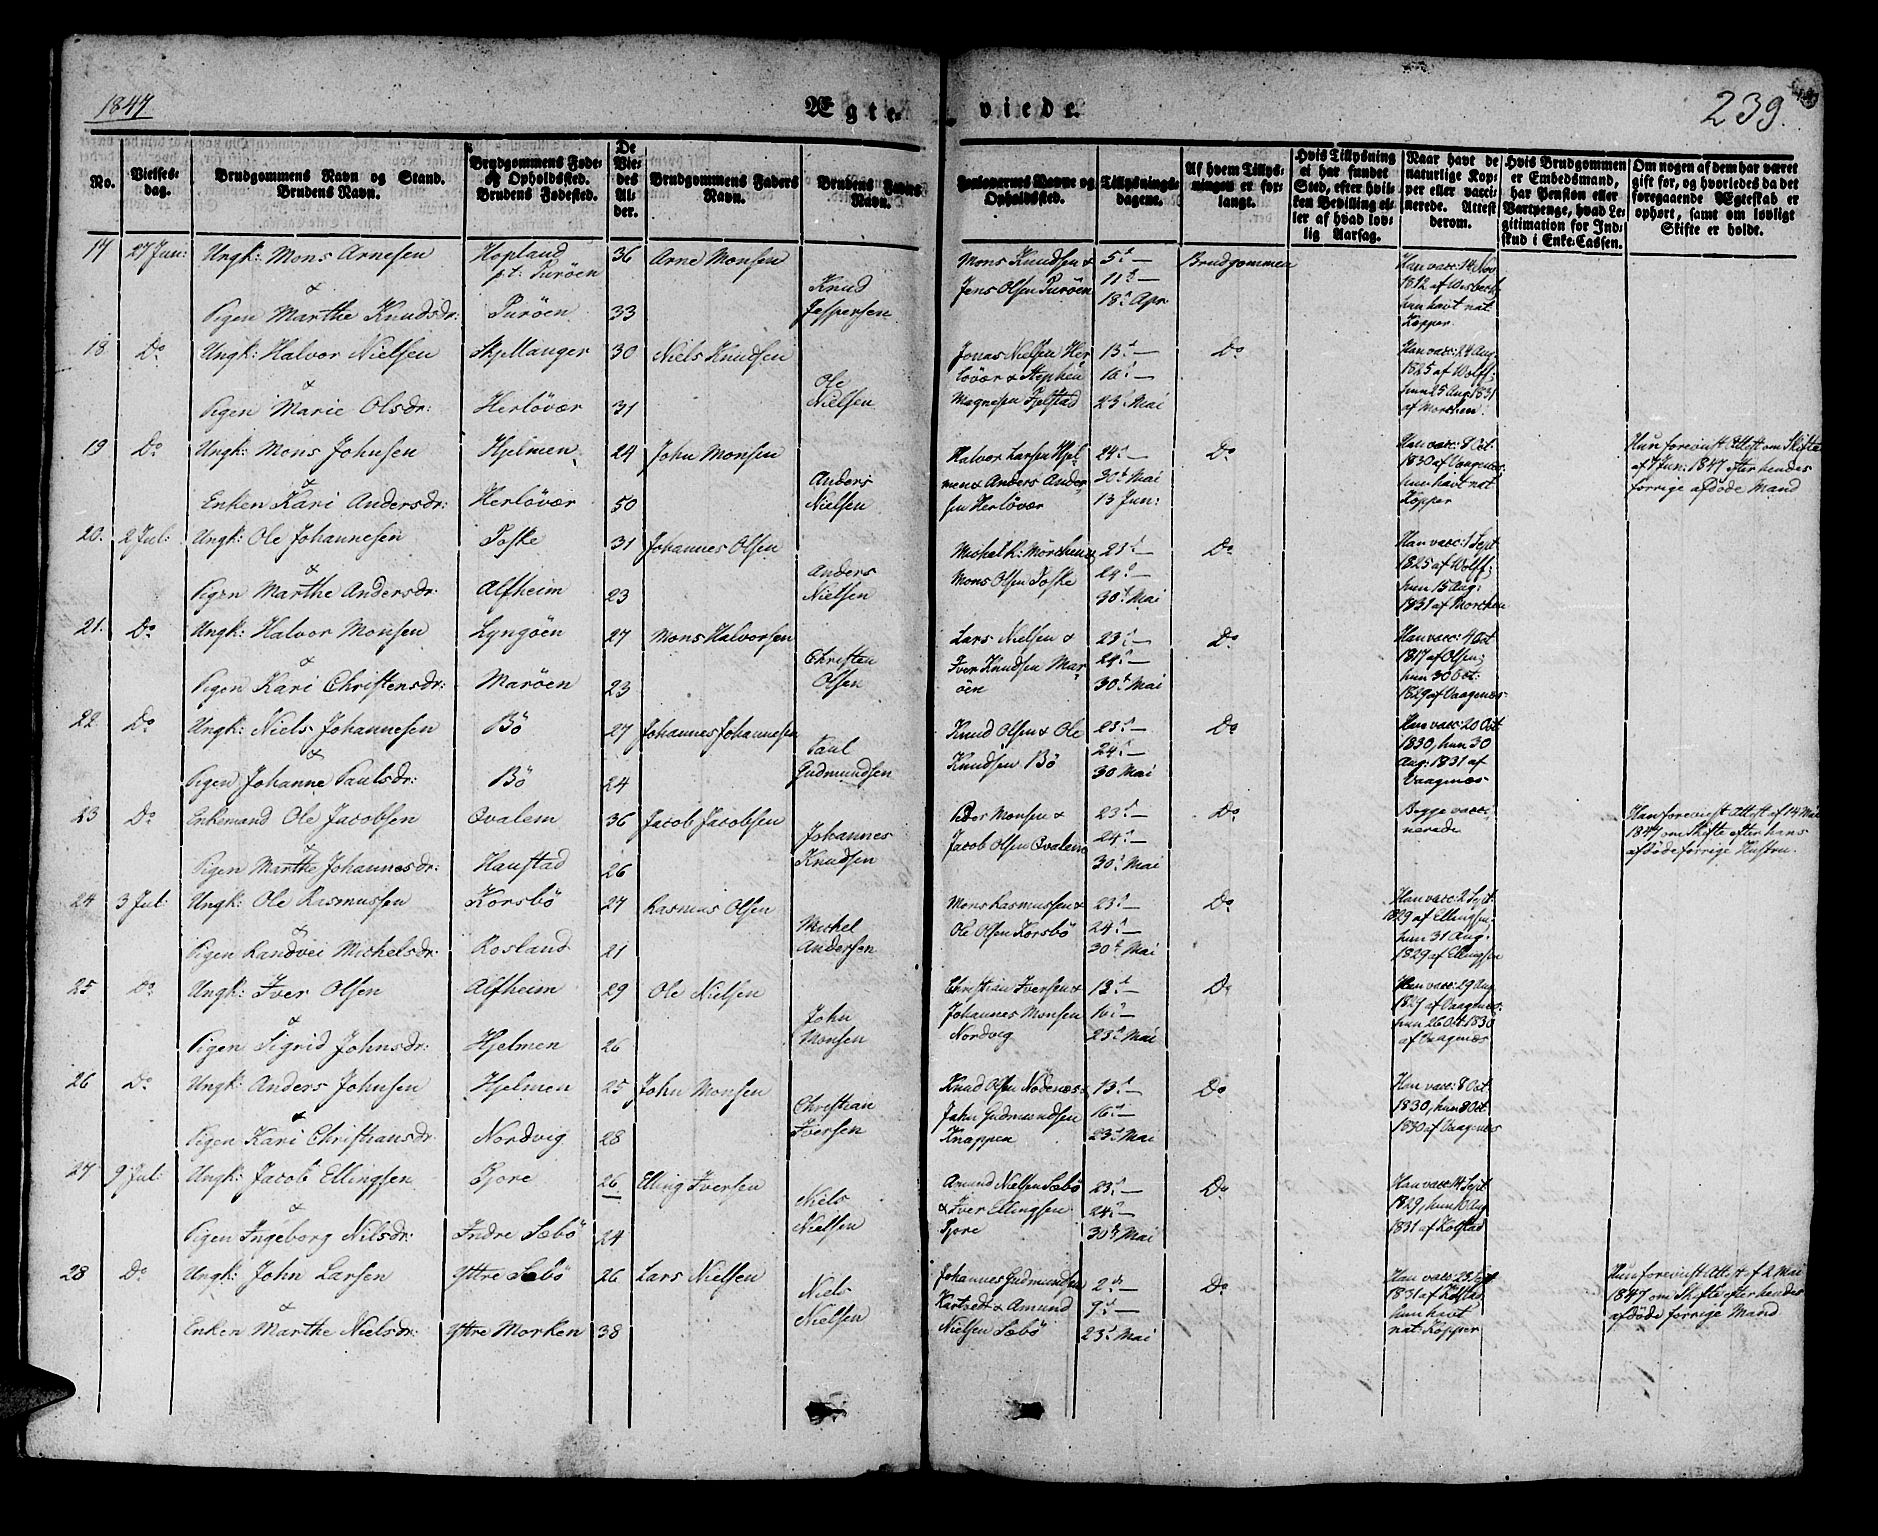 1847
Ægte-viede.
239.
No.
Vielses-dag.
Brudgommens Navn og Stand. Brudens Navn.
Brudgommens Føde- og Opholdssted. Brudens Fødested.
De Vie-des Al-der.
Brudgommens Faders Navn.
Brudens Faders Navn.
Forlovernes Navne og Opholdssted.
Tillysnings-dagene.
Af hvem Tillysningen er forlangt.
Hvis Tillysning ei har fundet Sted, efter hvilken Bevilling eller af hvad lovlig Aarsag.
Naar havt de naturlige Kopper eller vaccinerede. Attest derom.
Hvis Brudgommen er Embedsmand, har Pension eller Vartpenge, hvad Legitimation for Indskud i Enke-Cassen.
Om nogen af dem har været gift før, og hvorledes da det foregaaende Ægtestad er ophørt, samt om lovligt Skifte er holdt.
17 27 Jun: Ungk: Mons Arnesen Hopland 36 Arne Monsen Mons Knudsen & 5te — Brudgommen Han vacc: 14 Nov
& pt: Turöen Knud Jens Olsen Turöen 11te — 1812 af Wesbech
Pigen Marthe Knudsdr: Turöen 33 Jespersen 18de Apr hun havt nat Kopper
18 Do Ungk: Halvor Nielsen Skjellanger 30 Niels Knudsen Jonas Nielsen Her 13d — Do Han vacc: 24 Aug
& Ole lövær & Stephen 16d — 1825 af Wolff;
Pigen Marie Olsdr: Herlövær 31 Nielsen Magnesen Fjelstad 23d Mai hun 25 Aug 1831 af Morchen
19 Do Ungk: Mons Johnsen Hjelmen 24 John Monsen Halvor Larsen Hjel 24d — Do Han vacc: 8 Oct Hun foreviist Attest om Skifte
& Anders men & Anders Ander 30te Mai 1830 af Vaagenæs af 7 Jun: 1847 efter hendes
Enken Kari Andersdr: Herlövær 50 Nielsen sen Herlövær 13 Jun: hun havt nat Kopper forrige afdöde Mand
20. 2 Jul: Ungk: Ole Johannesen Toske 31 Johannes Olsen Michel K: Mörchen & 23d — Do Han vacc: 1 Sept
& Anders Mons Olsen Toske 24d — 1825 af Wolff;
Pigen Marthe Andersdr: Alfheim 23 Nielsen 30te Mai hun 15 Aug: 1831 af Morchen
21. Do Ungk: Halvor Monsen Lyngöen 27 Mons Halvorsen Lars Nielsen & 23d — Do Han vacc: 4 Oct
& Christen Iver Knudsen Mar 24d — 1817 af Olsen;
Pigen Kari Christensdr: Maröen 23 Olsen öen 30te Mai hun 30 Oct: 1829 af Vaagenæs
22. Do Ungk: Niels Johannesen Bö 27 Johannes Johannesen Knud Olsen & Ole 23d — Do Han vacc: 20 Oct
& Paul Knudsen Bö 24d — 1830, hun 30
Pigen Johanne Paulsdr: Bö 24 Gudmundsen 30 Mai Aug: 1831 af Vaagenæs
23 Do Enkemand Ole Jacobsen Qvalem 36 Jacob Jacobsen Peder Monsen & 23d — Do Begge vacci Han foreviist Attest af 14 Mai
& Johannes Jacob Olsen Qvalem 24d — nerede 1847 om Skifte efter hans
Pigen Marthe Johannesdr: Haustad 26 Knudsen 30d Mai afdöde forrige Hustru.
24 3 Jul: Ungk: Ole Rasmussen Korsbö 27 Rasmus Olsen Mons Rasmussen & 23d — Do Han vacc: 2 Sept
& Michel Ole Olsen Korsbö 24d — 1829 af Ellingsen,
Pigen Randvei Michelsdr: Rosland 21 Andersen 30te Mai hun 31 Aug: 1829 af Ellingsen
25 Do Ungk: Iver Olsen Alfheim 29 Ole Nielsen Christian Iversen & 13d — Do Han vacc: 29 Aug
& John Johannes Monsen 16d — 1827 af Vaagenæs:
Pigen Sigrid Johnsdr: Hjelmen 26 Monsen Nordvig 23de Mai hun 26 Oct: 1830 af Vaagenæs
26 Do Ungk: Anders Johnsen Hjelmen 25 John Monsen Knud Olsen Nödenæs & 13d — Do Han vacc: 8 Oct
& Christian John Gudmundsen 16d — 1830, hun 8 Oct
Pigen Kari Christiansdr: Nordvig 28 Iversen Knappen 23d Mai 1830 af Vaagenæs
27 9 Jul: Ungk: Jacob Ellingsen Tjore 26 Elling Iversen Amund Nielsen Sæbö 23d — Do Han vacc: 14 Sept
& Niels & Iver Ellingsen 24d — 1829, hun 10 Aug
Pigen Ingeborg Nilsdr: Indre Sæbö 24 Nielsen Tjore 30te Mai 1831 af Kolstad
28 Do Ungk: John Larsen Yttre Sæbö 26 Lars Nielsen Johannes Gudmundsen 2den — Do Han vacc: 23 Sept Hun foreviist Attest af 2 Mai
& Niels Kartvedt & Amund 9d — 1831 af Kolstad 1847 om Skifte efter hendes
Enken Marthe Nielsdr: Yttre Morken 38 Nielsen Nielsen Sæbö 23d Mai hun havt nat: Kopper afdöde forrige Mand